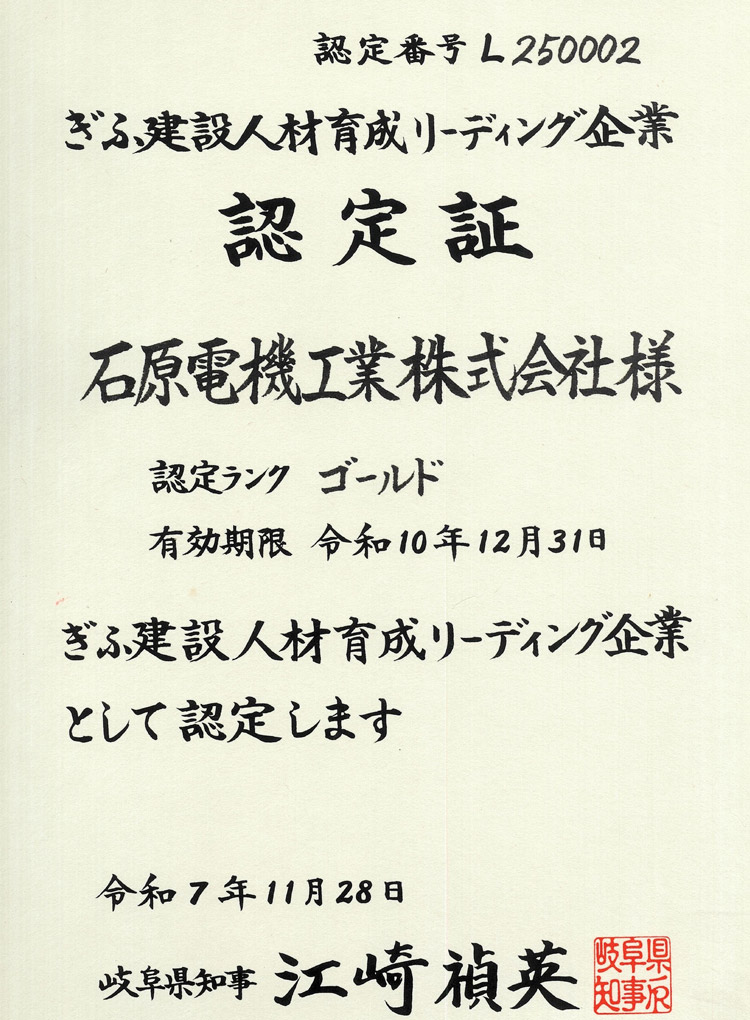 認定番号 L250002
ぎふ建設人材育成リーディング企業
認定証
石原電機工業株式会社様
認定ランク ゴールド
有効期限 令和10年12月31日
ぎふ建設人材育成リーディング企業
として認定します
令和7年11月28日
岐阜県知事 江崎禎英
岐阜県
知事印